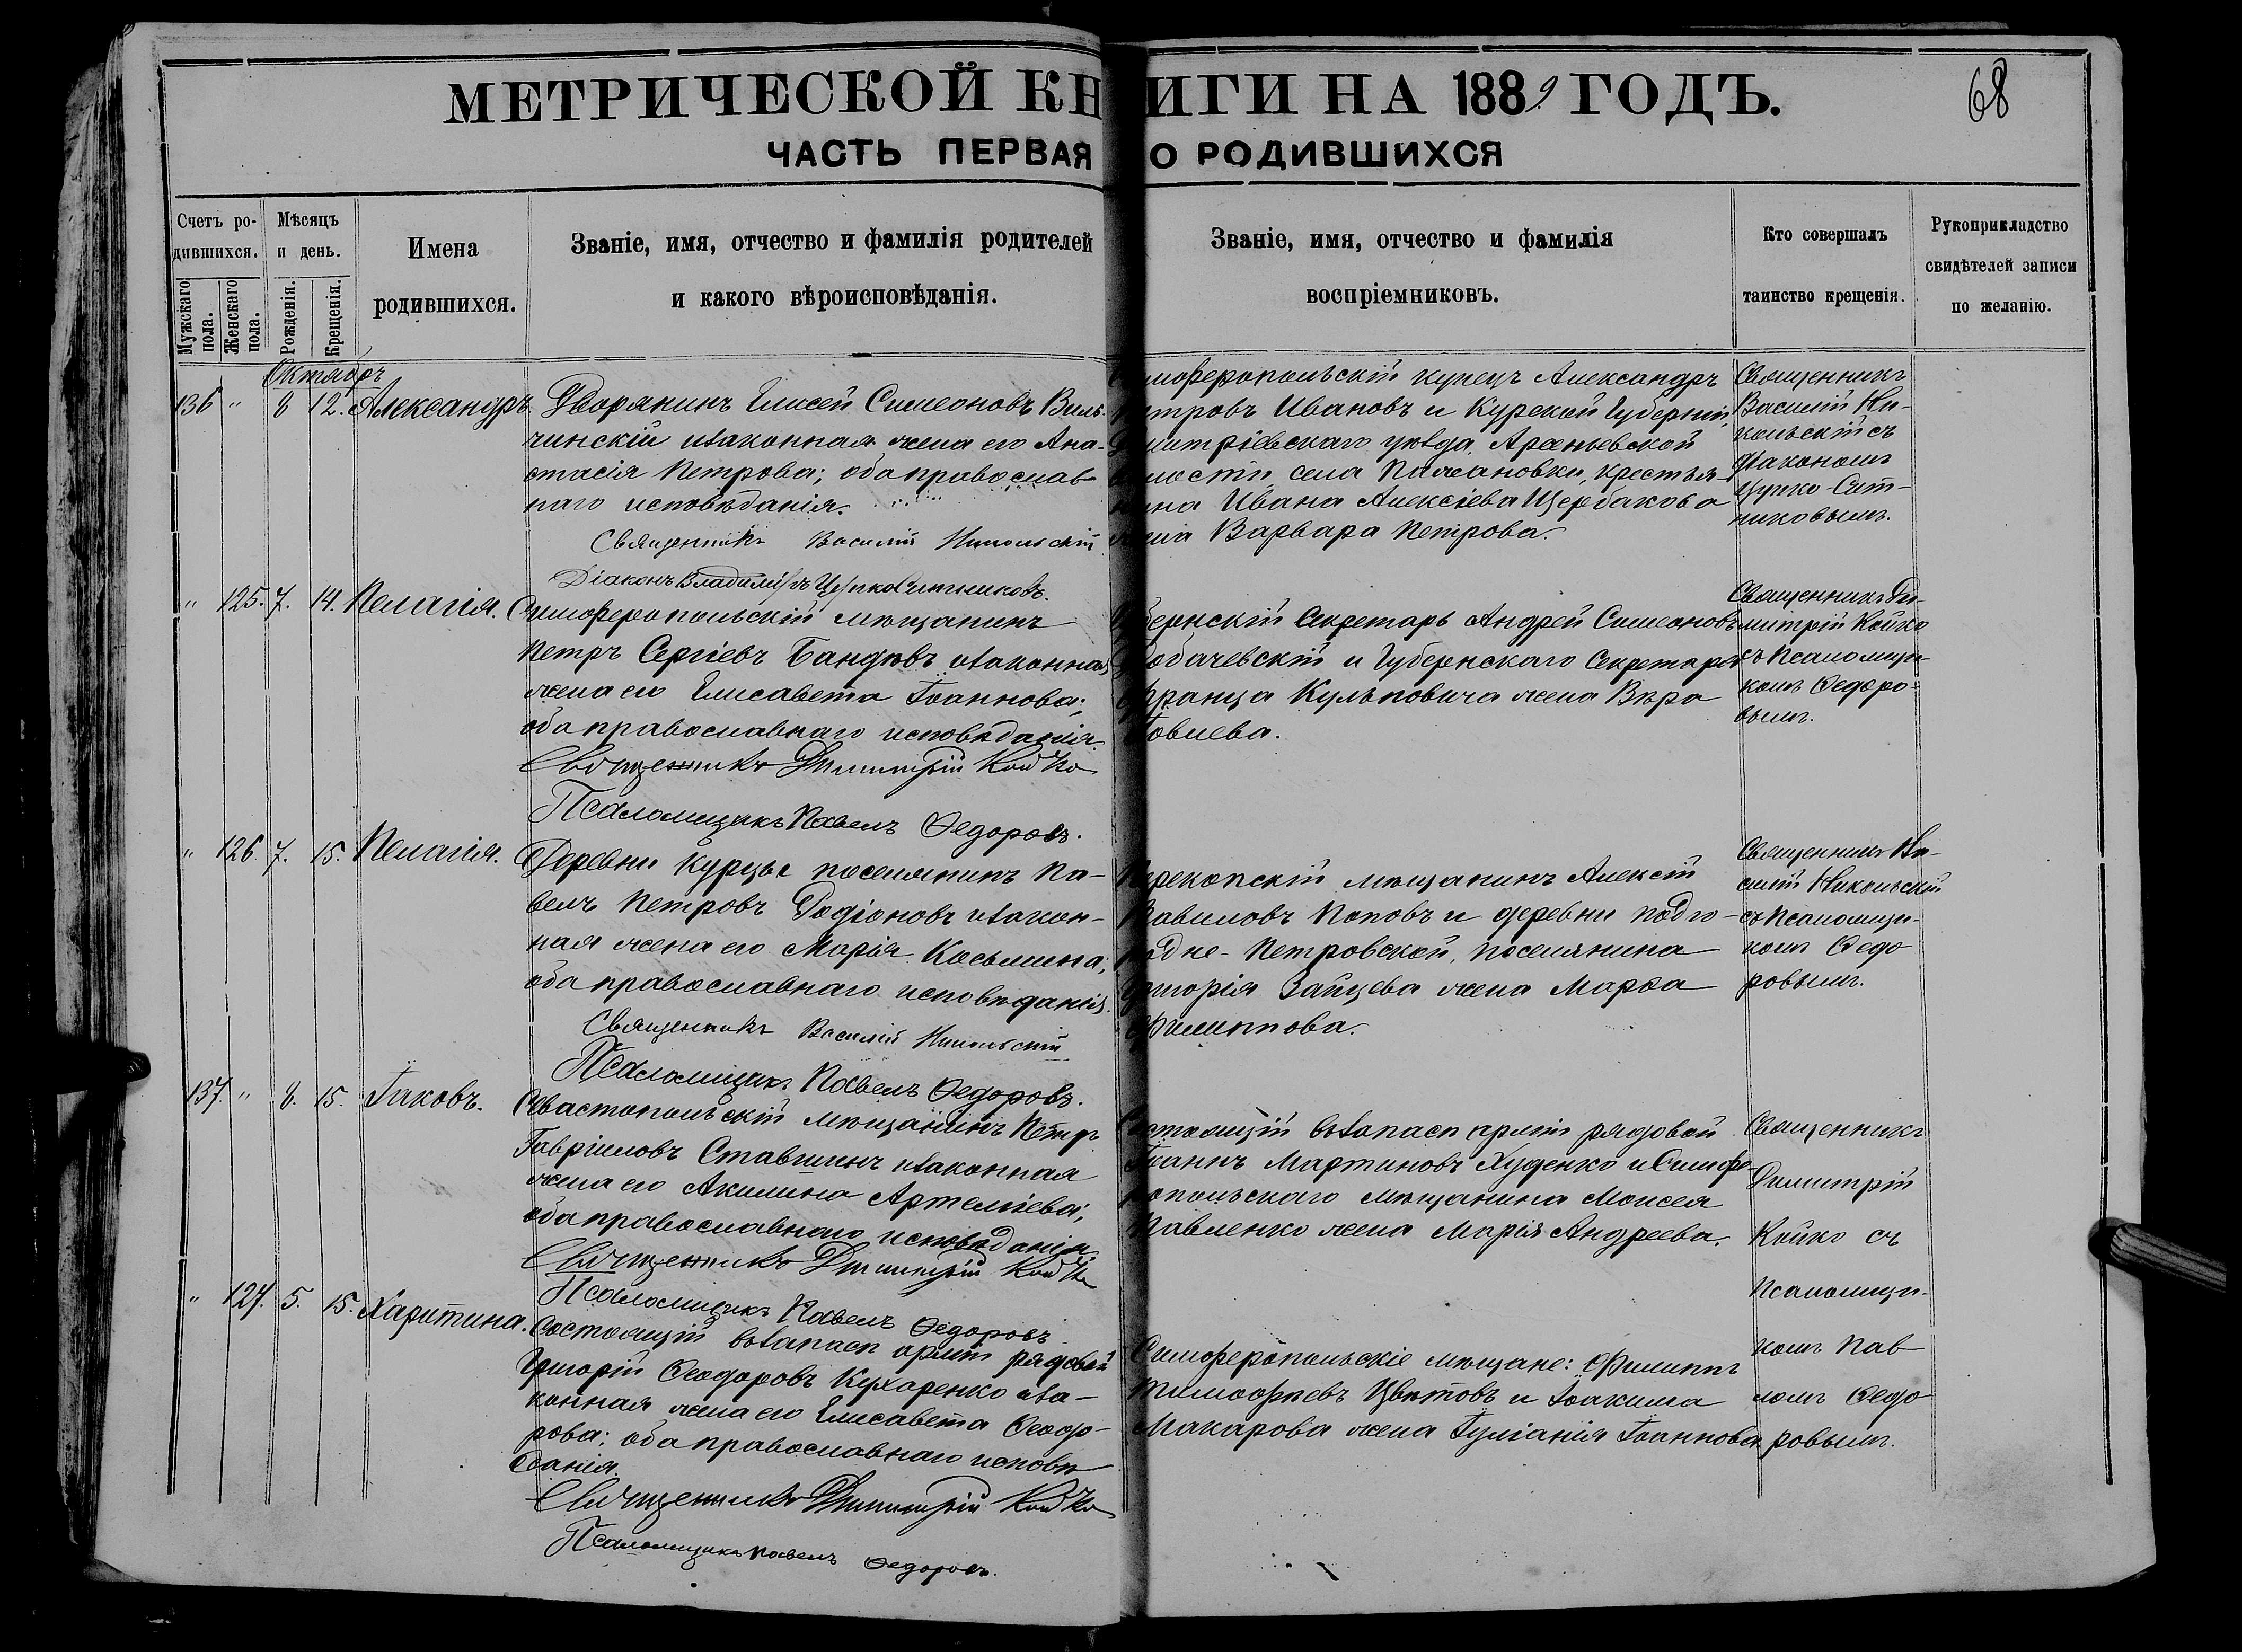 МЕТРИЧЕСКОЙ КНИГИ НА 1889 ГОДЪ.
68
ЧАСТЬ ПЕРВАЯ О РОДИВШИХСЯ
Счетъ родившихся.
Мужскаго пола.
Женскаго пола.
Мѣсяцъ и день.
Рожденія.
Крещенія.
Имена
родившихся.
Званіе, имя, отчество и фамилія родителей
и какого вѣроисповѣданія.
Званіе, имя, отчество и фамилія
воспріемниковъ.
Кто совершалъ
таинство крещенія.
Рукоприкладство
свидѣтелей записи
по желанію.
Октябрь
136 " 8 12. Александръ.
Дворянинъ Елисей Симеоновъ Виль-
чинскій и законная жена его Ана-
стасія Петрова; оба православ-
наго исповѣданія.
Священникъ Василій Никольскій
Діаконъ Владиміръ Цупко Ситниковъ.
Симферопольскій купецъ Александръ
Петровъ Ивановъ и Курской Губерніи,
Димитріевскаго уѣзда, Арсеньевской
волости, села крестья-
нина Ивана Алексіева Щербакова
жена Варвара Петрова.
Священникъ
Василій Ни-
кольскій съ
Діакономъ
Цупко-Сит-
никовымъ.
" 125. 7. 14. Пелагія.
Симферопольскій мѣщанинъ
Петръ Сергіевъ и законная
жена его Елисавета Іоаннова;
оба православнаго исповѣданія.
Священникъ Димитрій Койко
Псаломщикъ Павелъ Федоровъ.
Губернскій Секретарь Андрей Симеоновъ
и Губернскаго Секретаря
Франца Кульповича жена Вѣра
Священникъ Ди-
митрій Койко
съ Псаломщи-
комъ Федоро-
вымъ.
" 126. 7. 15. Пелагія.
Деревни Курцы поселянинъ Па-
велъ Петровъ Родіоновъ и закон-
ная жена его Марія Косьмина;
оба православнаго исповѣданія.
Священникъ Василій Никольскій
Псаломщикъ Павелъ Федоровъ.
Перекопскій мѣщанинъ Алексій
Вавиловъ Поповъ и деревни Подго-
родне-Петровской, поселянина
Григорія Зайцева жена Марѳа
Филиппова.
Священникъ Ва-
силій Никольскій
съ Псаломщи-
комъ Федо
ровымъ.
137. " 8. 15. Іаковъ.
Севастопольскій мѣщанинъ Петръ
Гавріиловъ и законная
жена его Акилина Артеміева;
оба православнаго исповѣданія.
Священникъ Димитрій Койко
Псаломщикъ Павелъ Федоровъ
Состоящій въ запасѣ арміи рядовой
Іоаннъ Мартиновъ Худенко и Симфе-
ропольскаго мѣщанина Моисея
Павленко жена Марія Андреева.
Священникъ
Димитрій
Койко съ
Псаломщи-
комъ Пав
ломъ Федо
ровымъ.
" 127. 5. 15. Харитина.
Состоящій въ запасѣ арміи рядовой
Григорій Ѳеодоровъ Кухаренко и за-
конная жена его Елисавета Ѳеодо-
рова; оба православнаго исповѣ
данія.
Священникъ Димитрій Койко
Псаломщикъ Павелъ Федоровъ.
Симферопольскіе мѣщане: Филиппъ
Тимоѳеевъ Цвѣтовъ и Іоакима
Макарова жена Іуліанія Іоаннова.